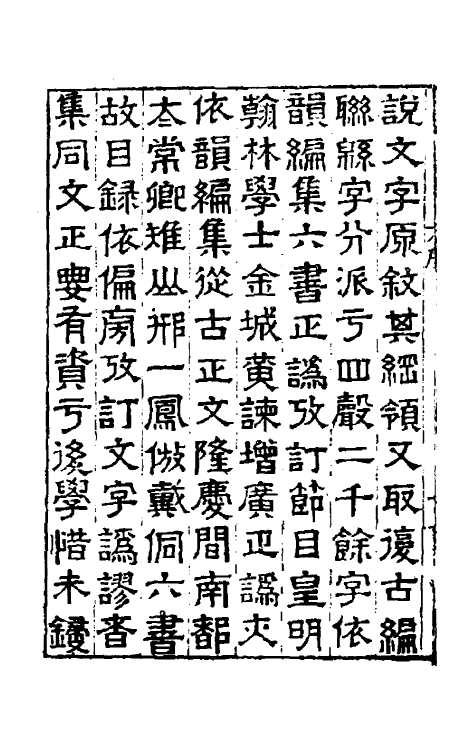 說文字原敘其綱領又取復古編
聯緜字分派于四聲二千餘字依
韻編集六書正譌攷訂節目皇明
翰林學士金城黃諫增廣正譌夫
依韻編集從古正文隆慶間南都
太常卿雉山邢一鳳倣戴侗六書
故目錄依偏㫄攷訂文字譌謬者
集同文正要有資于後學惜未鋟